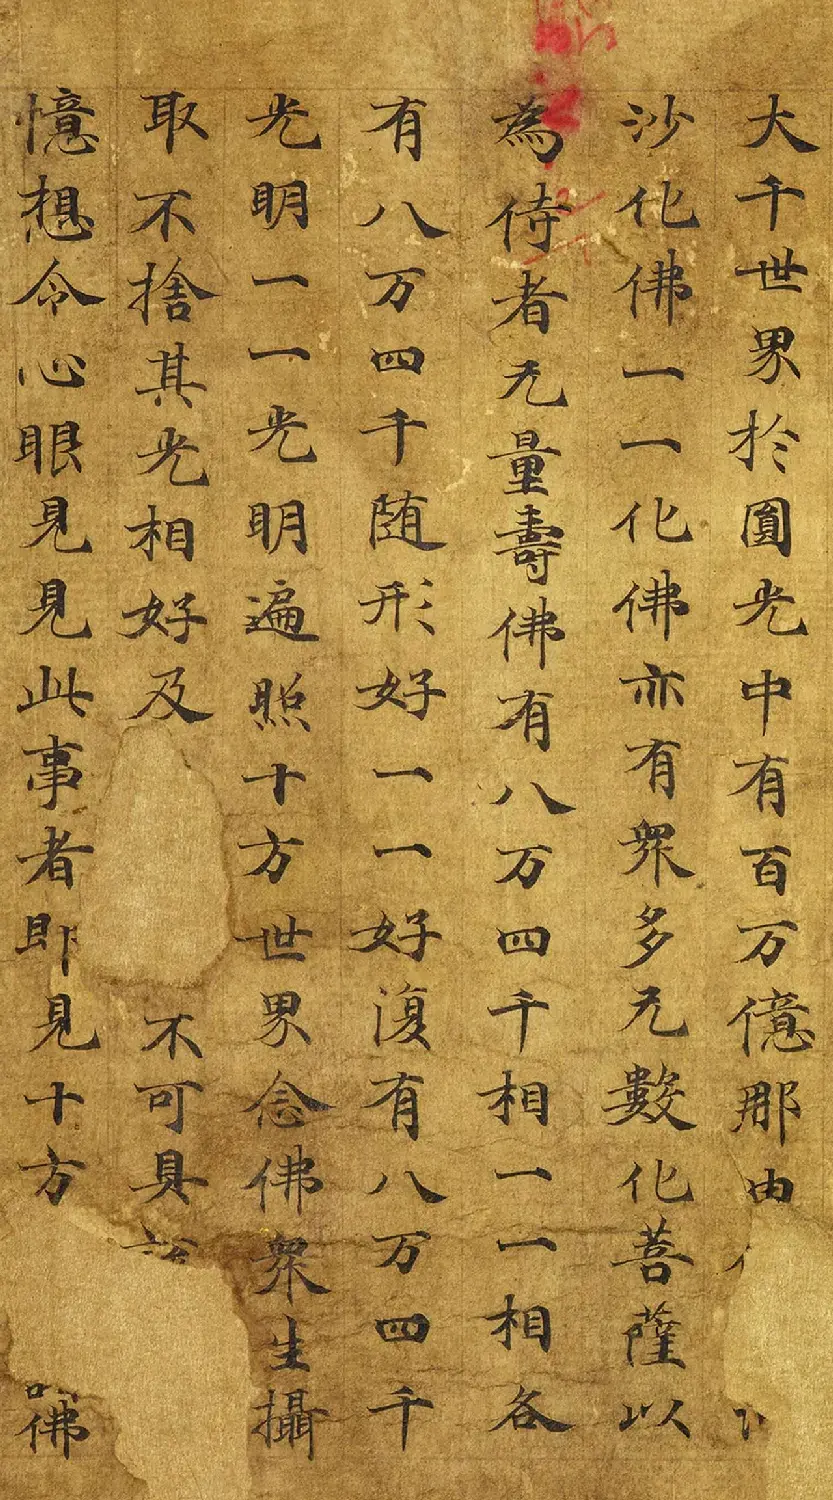 大千世界於圓光中有百万億那由
沙化佛一一化佛亦有衆多无數化菩薩以
為侍者无量壽佛有八万四千相一一相各
有八万四千随形好一一好復有八万四千
光明一一光明遍照十方世界念佛衆生攝
取不捨其光相好及不可具
憶想令心眼見見此事者即見十方佛